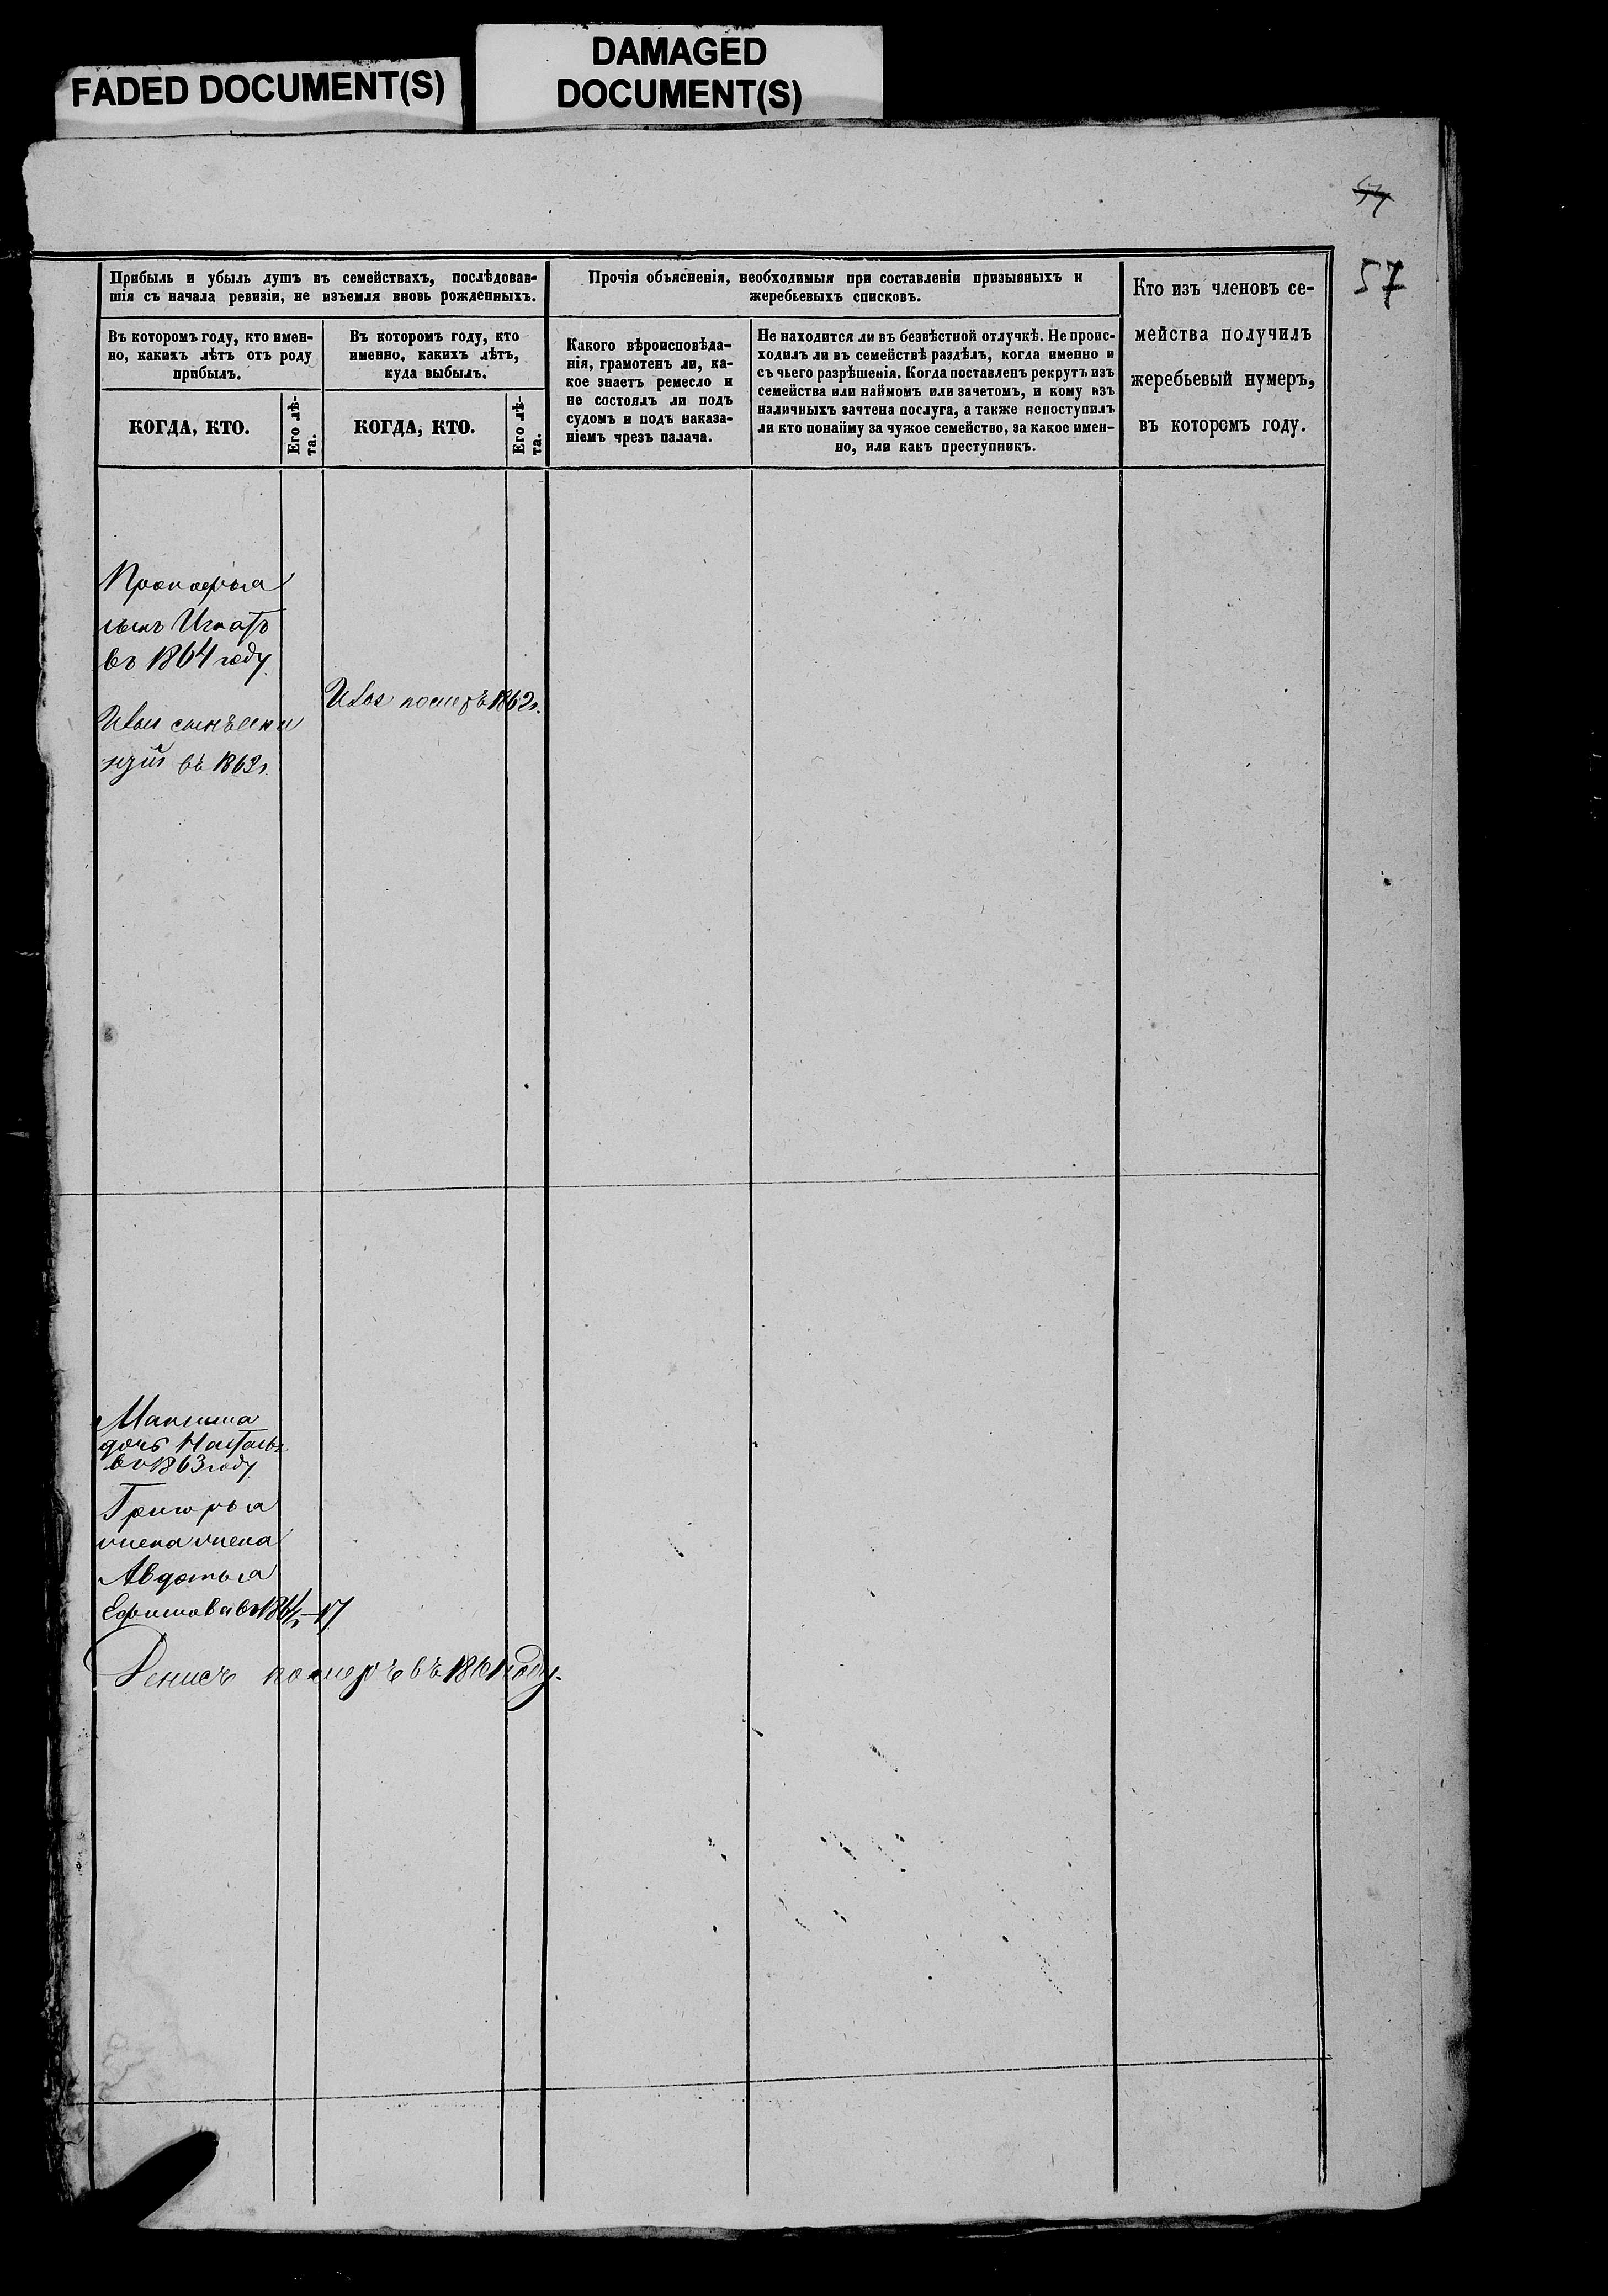 FADED DOCUMENT(S)
DAMAGED
DOCUMENT(S)
57
Прибыль и убыль душъ въ семействахъ, послѣдовав-
шія съ начала ревизіи, не изъемля вновь рожденныхъ.
Въ которомъ году, кто имен-
но, какихъ лѣтъ отъ роду
прибылъ.
КОГДА, КТО.
Его лѣ-
та.
Въ которомъ году, кто
именно, какихъ лѣтъ,
куда выбылъ.
КОГДА, КТО.
Его лѣ-
та.
Прочія объясненія, необходимыя при составленіи призывныхъ и
жеребьевыхъ списковъ.
Какого вѣроисповѣда-
нія, грамотенъ ли, ка-
кое знаетъ ремесло и
не состоялъ ли подъ
судомъ и подъ наказа-
ніемъ чрезъ палача.
Не находится ли въ безвѣстной отлучкѣ. Не проис-
ходилъ ли въ семействѣ раздѣлъ, когда именно и
съ чьего разрѣшенія. Когда поставленъ рекрутъ изъ
семейства или наймомъ или зачетомъ, и кому изъ
наличныхъ зачтена послуга, а также непоступилъ
ли кто понайму за чужое семейство, за какое имен-
но, или какъ преступникъ.
Кто изъ членовъ се-
мейства получилъ
жеребьевый нумеръ,
въ которомъ году.
Прокофья
сынъ Игнатъ
въ 1864 году.
померъ 1862г.
сынъ
въ 1862г.
Максима
дочь Наталья
въ 1863 году
Григорья
жена
Авдотья
Ефимова въ 17
Денисъ померъ въ 1861 году.